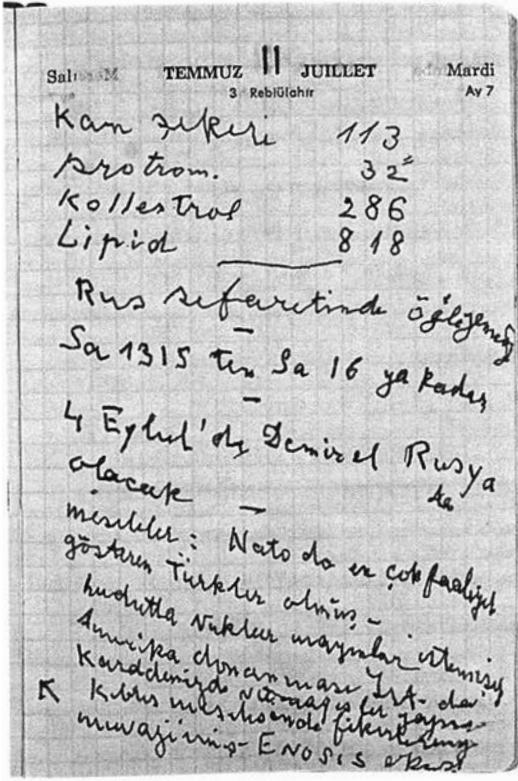 Salı TEMMUZ 11 JUILLET Mardi
3 Rebiülahır Ay 7
Kan şekeri 113
protrom. 32"
Kollestrol 286
Lipid 818
Rus sefaretinde öğleyemeği
Sa 1315 ten Sa 16 ya kadar
4 Eylul'de Demirel Rusya
da
olacak
meseleler: Nato da en çok faaliyet
gösteren Türkler olmuş -
hudutta nükleer mayınlar
Amerika donanması
Karadenizde
K Kıbrıs
ENOSIS